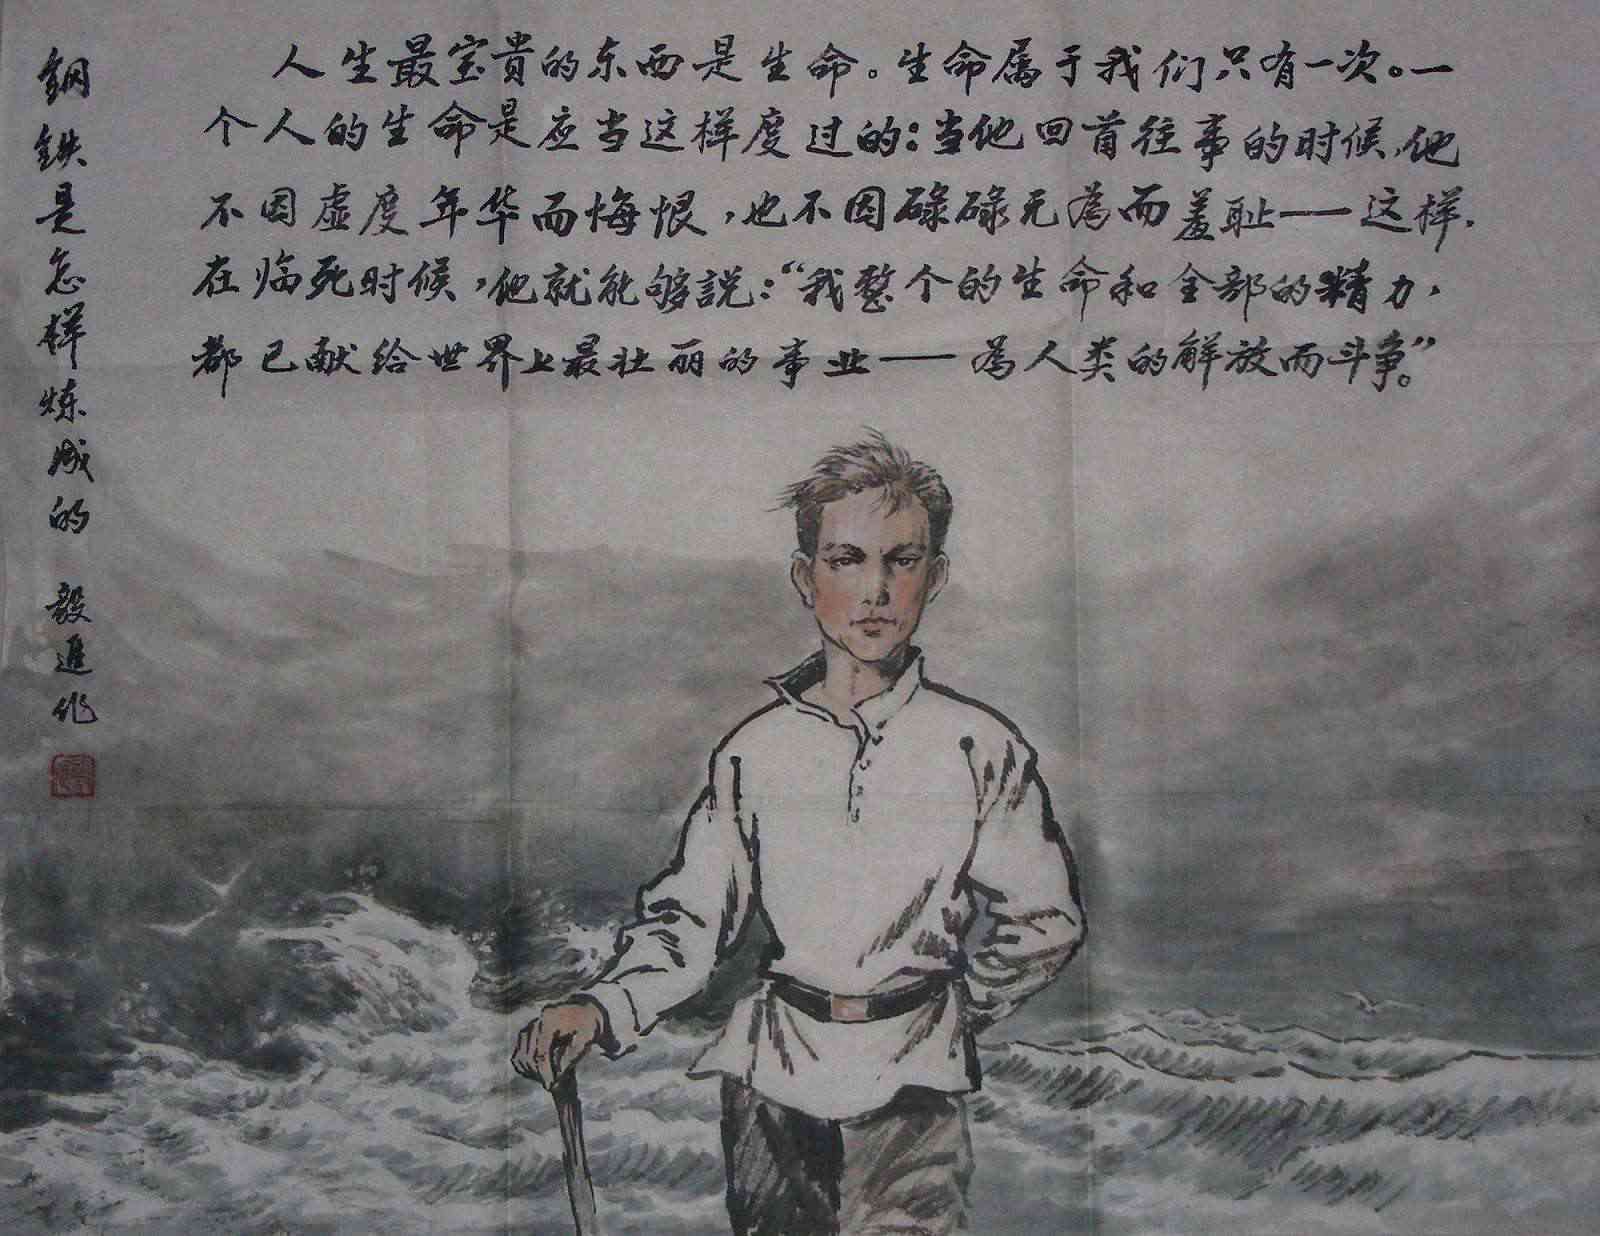 人生最宝贵的东西是生命。生命属于我们只有一次。一
个人的生命是应当这样度过的：当他回首往事的时候，他
不因虚度年华而悔恨，也不因碌碌无为而羞耻——这样，
在临死时候，他就能够説：“我整个的生命和全部的精力，
都已献给世界上最壮丽的事业——為人类的解放而斗争。”
钢鉄是怎样炼成的 毅進作